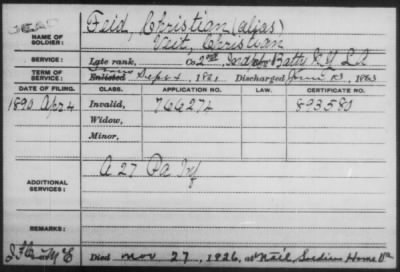 DEAD
NAME OF SOLDIER: Feid, Christian (alias)
Veit, Christian
SERVICE: Late rank, Co. 2nd Batty N.Y. L.A.
TERM OF SERVICE: Enlisted Sept 1861 Discharged June 13, 1863
DATE OF FILING. CLASS. APPLICATION NO. LAW. CERTIFICATE NO.
1890 Apr 4 Invalid, 766274 893580
Widow,
Minor,
ADDITIONAL SERVICES: A 27 Pa Inf
REMARKS:
Died Nov 27, 1926, at Nat'l. Soldiers Home Va